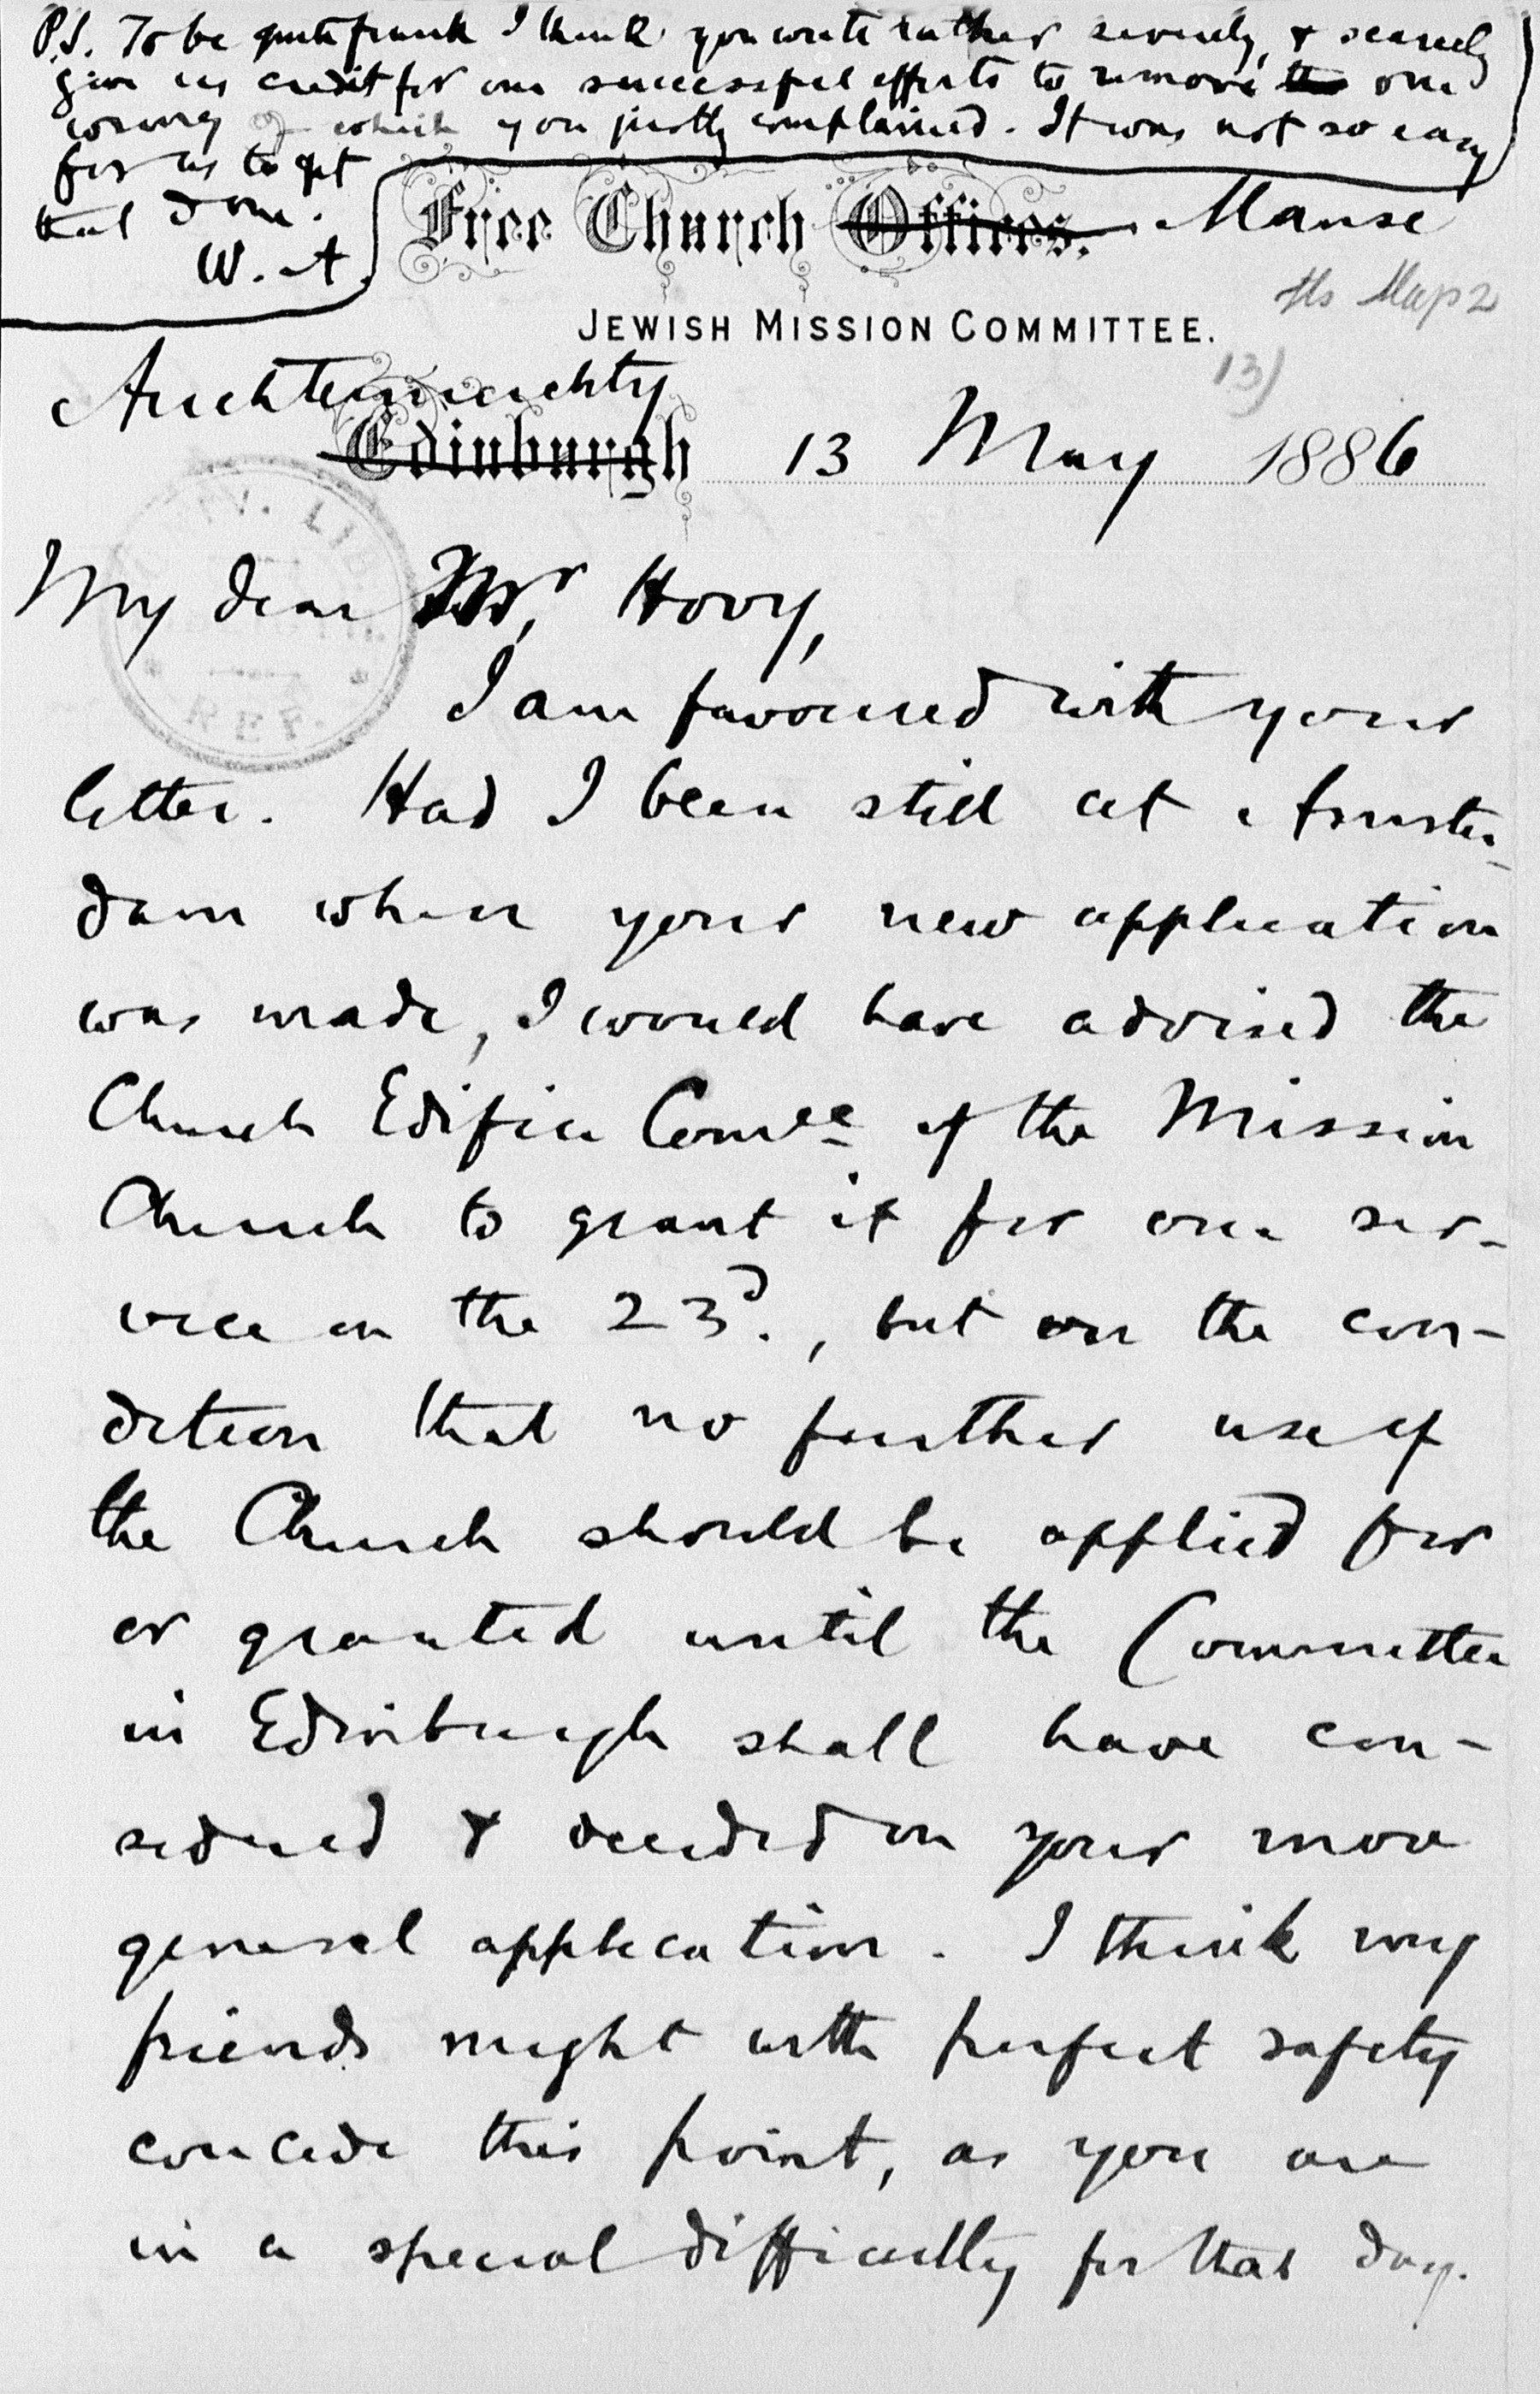 P.S. To be quite frank I think you write rather severely, & scarcely
give us credit for our successful efforts to remove the one
wrong of which you justly complained. It was not so easy
for us to get
that done.
W. A.
Free Church Offices. Manse
JEWISH MISSION COMMITTEE.
13)
Auchtermuchty
Edinburgh 13 May 1886
My dear Mr, Hovy,
I am favoured with your
letter. Had I been still at Amster-
dam when your new application
was made, I would have advised the
Church Edifice Comee of the Mission
Church to grant it for one ser-
vice on the 23d., but on the con-
dition that no further use of
the Church should be applied for
or granted until the Committee
in Edinburgh shall have con-
sidered & decided on your more
general application. I think my
friends might with perfect safety
concede this point, as you are
in a special difficulty for that day.
V. LIB
REF.